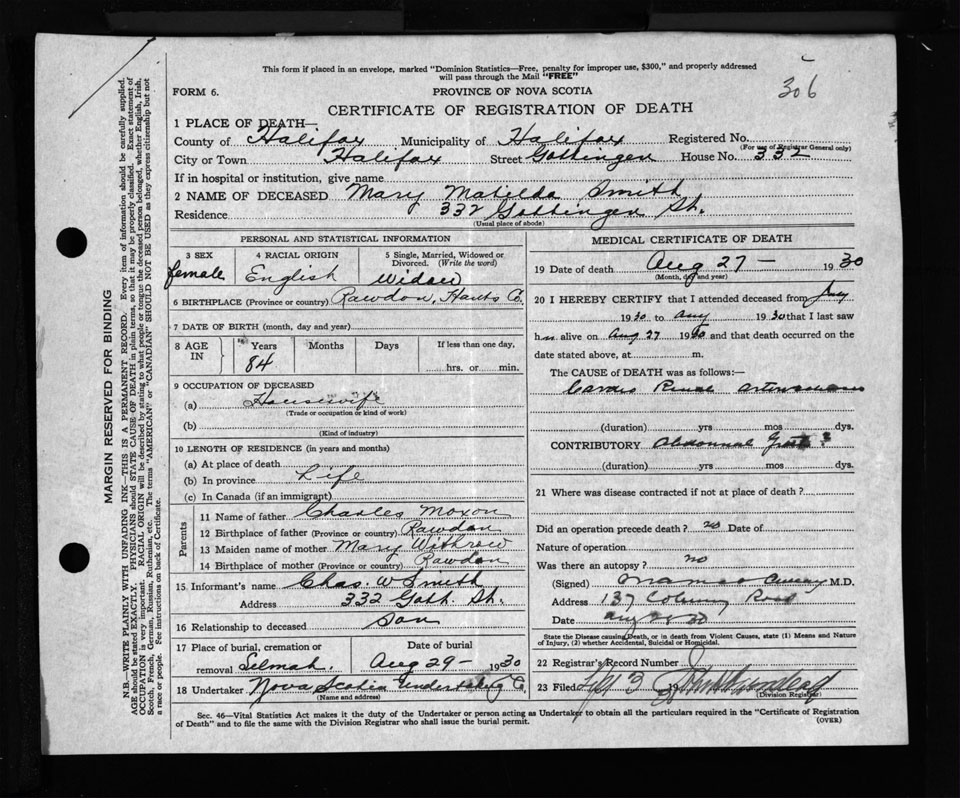 This form if placed in an envelope, marked "Dominion Statistics—Free, penalty for improper use, $300," and properly addressed
will pass through the Mail "FREE"
306
FORM 6.
PROVINCE OF NOVA SCOTIA
CERTIFICATE OF REGISTRATION OF DEATH
1 PLACE OF DEATH—
County of Halifax Municipality of Halifax Registered No.
(For use of Registrar General only)
City or Town Halifax Street Gottingen House No. 332
If in hospital or institution, give name
2 NAME OF DECEASED Mary Matilda Smith
Residence 332 Gottingen St.
(Usual place of abode)
PERSONAL AND STATISTICAL INFORMATION
3 SEX 4 RACIAL ORIGIN 5 Single, Married, Widowed or
Divorced. (Write the word)
female English Widow
6 BIRTHPLACE (Province or country) Rawdon, Hants Co.
7 DATE OF BIRTH (month, day and year)
8 AGE IN Years Months Days If less than one day,
84 hrs. or min.
9 OCCUPATION OF DECEASED
(a) Housewife
(Trade or occupation or kind of work)
(b)
(Kind of industry)
10 LENGTH OF RESIDENCE (in years and months)
(a) At place of death
(b) In province Life
(c) In Canada (if an immigrant)
Parents
11 Name of father Charles Moxon
12 Birthplace of father (Province or country) Rawdon
13 Maiden name of mother Mary Withrow
14 Birthplace of mother (Province or country) Rawdon
15 Informant's name Chas. W Smith
Address 332 Gott. St.
16 Relationship to deceased Son
17 Place of burial, cremation or Date of burial
removal Selmah. Aug 29 - 1930
18 Undertaker Nova Scotia Undertaking Co.
(Name and address)
MEDICAL CERTIFICATE OF DEATH
19 Date of death Aug 27 - 1930
(Month, day and year)
20 I HEREBY CERTIFY that I attended deceased from
1930 to Aug 1930 that I last saw
h alive on Aug 27 1930 and that death occurred on
date stated above, at m.
The CAUSE of DEATH was as follows:—
Cardio Renal
(duration) yrs mos dys.
CONTRIBUTORY Abdominal
(duration) yrs mos dys.
21 Where was disease contracted if not at place of death?
Did an operation precede death? no Date of
Nature of operation
Was there an autopsy? no
(Signed) M.D.
Address 137 Road
Date Aug 28 30
State the Disease causing Death, or in death from Violent Causes, state (1) Means and Nature
of Injury, (2) whether Accidental, Suicidal or Homicidal.
22 Registrar's Record Number
23 Filed Sept 3
(Division Registrar)
Sec. 46—Vital Statistics Act makes it the duty of the Undertaker or person acting as Undertaker to obtain all the particulars required in the "Certificate of Registration
of Death" and to file the same with the Division Registrar who shall issue the burial permit.
(OVER)
MARGIN RESERVED FOR BINDING
N.B.—WRITE PLAINLY WITH UNFADING INK—THIS IS A PERMANENT RECORD. Every item of information should be carefully supplied.
AGE should be stated EXACTLY. PHYSICIANS should STATE CAUSE OF DEATH in plain terms, so that it may be properly classified. Exact statement of
OCCUPATION is very important. RACIAL ORIGIN will be described by stating to what people or tongue the deceased person belonged, whether English, Irish,
Scotch, French, German, Russian, Ruthenian, etc. The terms "AMERICAN" or "CANADIAN" SHOULD NOT BE USED as they express citizenship but not
a race or people. Fee instructions on back of Certificate.